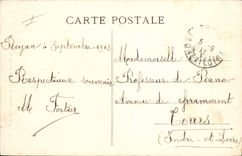 CARTE POSTALE
Royan 4 Septembre 1903
Respectueux souvenir
M. Fortier
Mademoiselle
Professeur de Piano
Avenue de Grammont
Tours
(Indre-et-Loire)